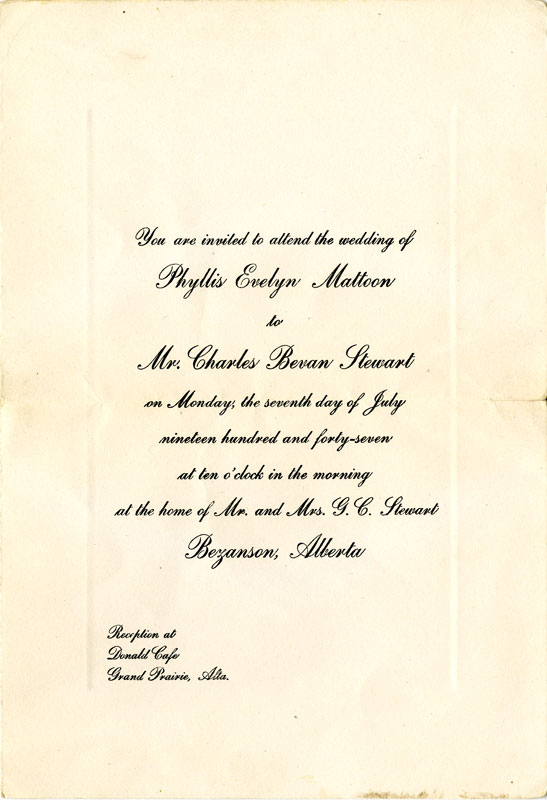 You are invited to attend the wedding of
Phyllis Evelyn Mattoon
to
Mr. Charles Bevan Stewart
on Monday, the seventh day of July
nineteen hundred and forty-seven
at ten o'clock in the morning
at the home of Mr. and Mrs. G. C. Stewart
Bezanson, Alberta
Reception at
Donald Cafe
Grand Prairie, Alta.